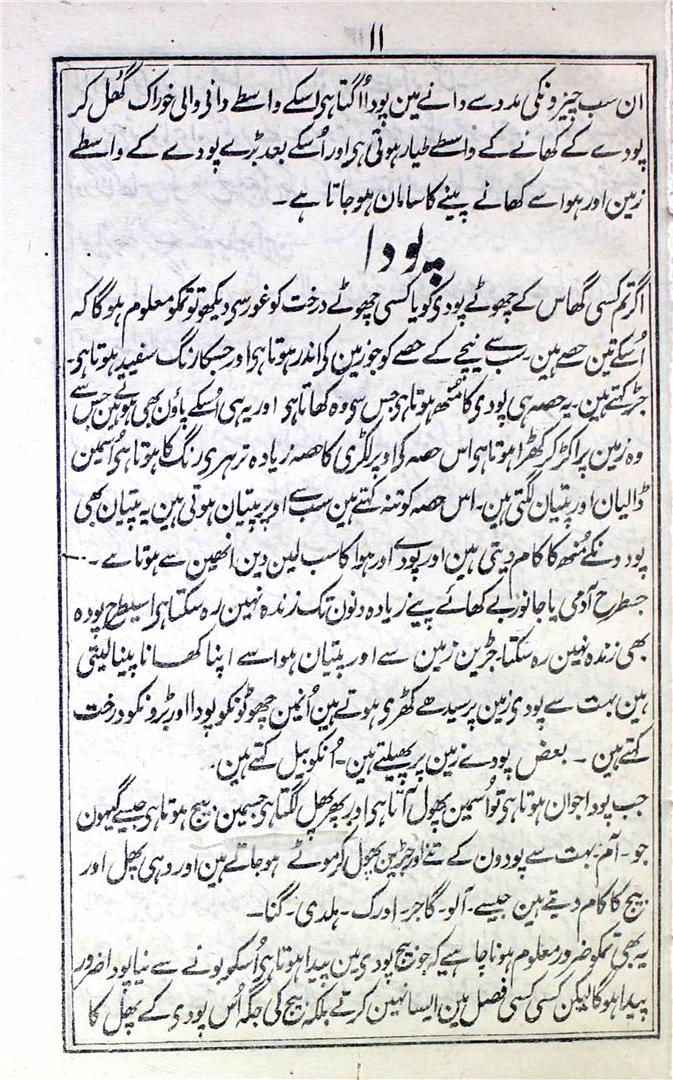 ۱۱
ان سب چیزونکی مدد سے دانے مین پودا اُگتا ہی اسکے واسطے دانی والی خوراک گھل کر
پودے کے کھانے کے واسطے طیار ہوتی ہی اور اُسکے بعد بڑے پودے کے واسطے
زمین اور ہوا سے کھانے پینے کا سامان ہو جاتا ہے ۔
پودا
اگر تم کسی گھاس کے چھوٹے پودی کو یا کسی چھوٹے درخت کو غور سی دیکھو تو تمکو معلوم ہوگا کہ
اُسکے تین حصے ہین ۔ سب سے نیچے کے حصے کو جو زمین کی اندر ہوتا ہی اور جسکا رنگ سفید ہوتا ہی ۔
جڑ کہتے ہین ۔ یہ حصہ ہی پودی کا مُنھ ہوتا ہی جس سی وہ کھاتا ہی اور یہ ہی اُسکے پاؤن بھی ہوتے ہین جس سے
وہ زمین پر اکڑ کر کھڑا ہوتا ہی اس حصہ کی اوپر لکڑی کا حصہ زیادہ تر ہری رنگ کا ہوتا ہی اُسمین
ڈالیان اور پتیان لگتی ہین ۔ اس حصہ کو تنہ کہتے ہین سب سے اوپر پتیان ہوتی ہین یہ پتیان بھی
پودونکے مُنھ کا کام دیتی ہین اور پودے اور ہوا کا سب لین دین انھین سے ہوتا ہے ۔
جسطرح آدمی یا جانور بے کھائے پیے زیادہ دنون تک زندہ نہین رہ سکتا ہی اسیطرح پودہ
بھی زندہ نہین رہ سکتا جڑین زمین سے اور پتیان ہوا سے اپنا کھانا پینا لیتی
ہین بہت سے پودی زمین پر سیدھے کھڑی ہوتے ہین اُنمین چھوٹونکو پودا اور بڑونکو درخت
کہتے ہین ۔ بعض پودے زمین پر پھیلتے ہین ۔ اُنکو بیل کہتے ہین ۔
جب پودا جوان ہوتا ہی تو اُسمین پھول آتا ہی اور پھر پھل لگتا ہی جسمین بیج ہوتا ہی جیسے گیہون
جو ۔ آم ۔ بہت سے پودون کے تنے اور جڑین پھول کر موٹے ہو جاتے ہین اور وہی پھل اور
بیج کا کام دیتے ہین جیسے ۔ آلو ۔ گاجر ۔ ادرک ۔ ہلدی ۔ گنا ۔
یہ بھی تمکو ضرور معلوم ہونا چاہیے کہ جو بیج پودی مین پیدا ہوتا ہی اُسکو بونے سے نیا پودا ضرور
پیدا ہوگا لیکن کسی کسی فصل مین ایسا نہین کرتے بلکہ بیج کی جگہ اُس پودی کے پھل کا